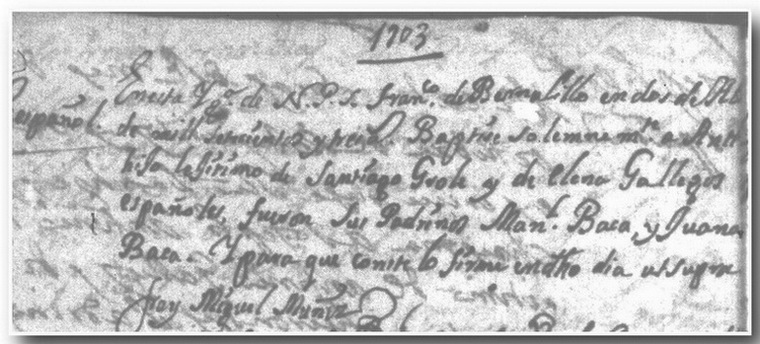 1703
En esta Yga. de N. P. S. Franco. de Bernalillo en dos de
español. de mill setecientos y tres Baptise solemnemte. a
hijo lexitimo de Santiago Grole y de Elena Gallegos
españoles, fueron sus Padrinos Manl. Baca, y Juana
Baca. Y para que conste lo firme en dho dia ut supra
Fray Miguel Muñiz